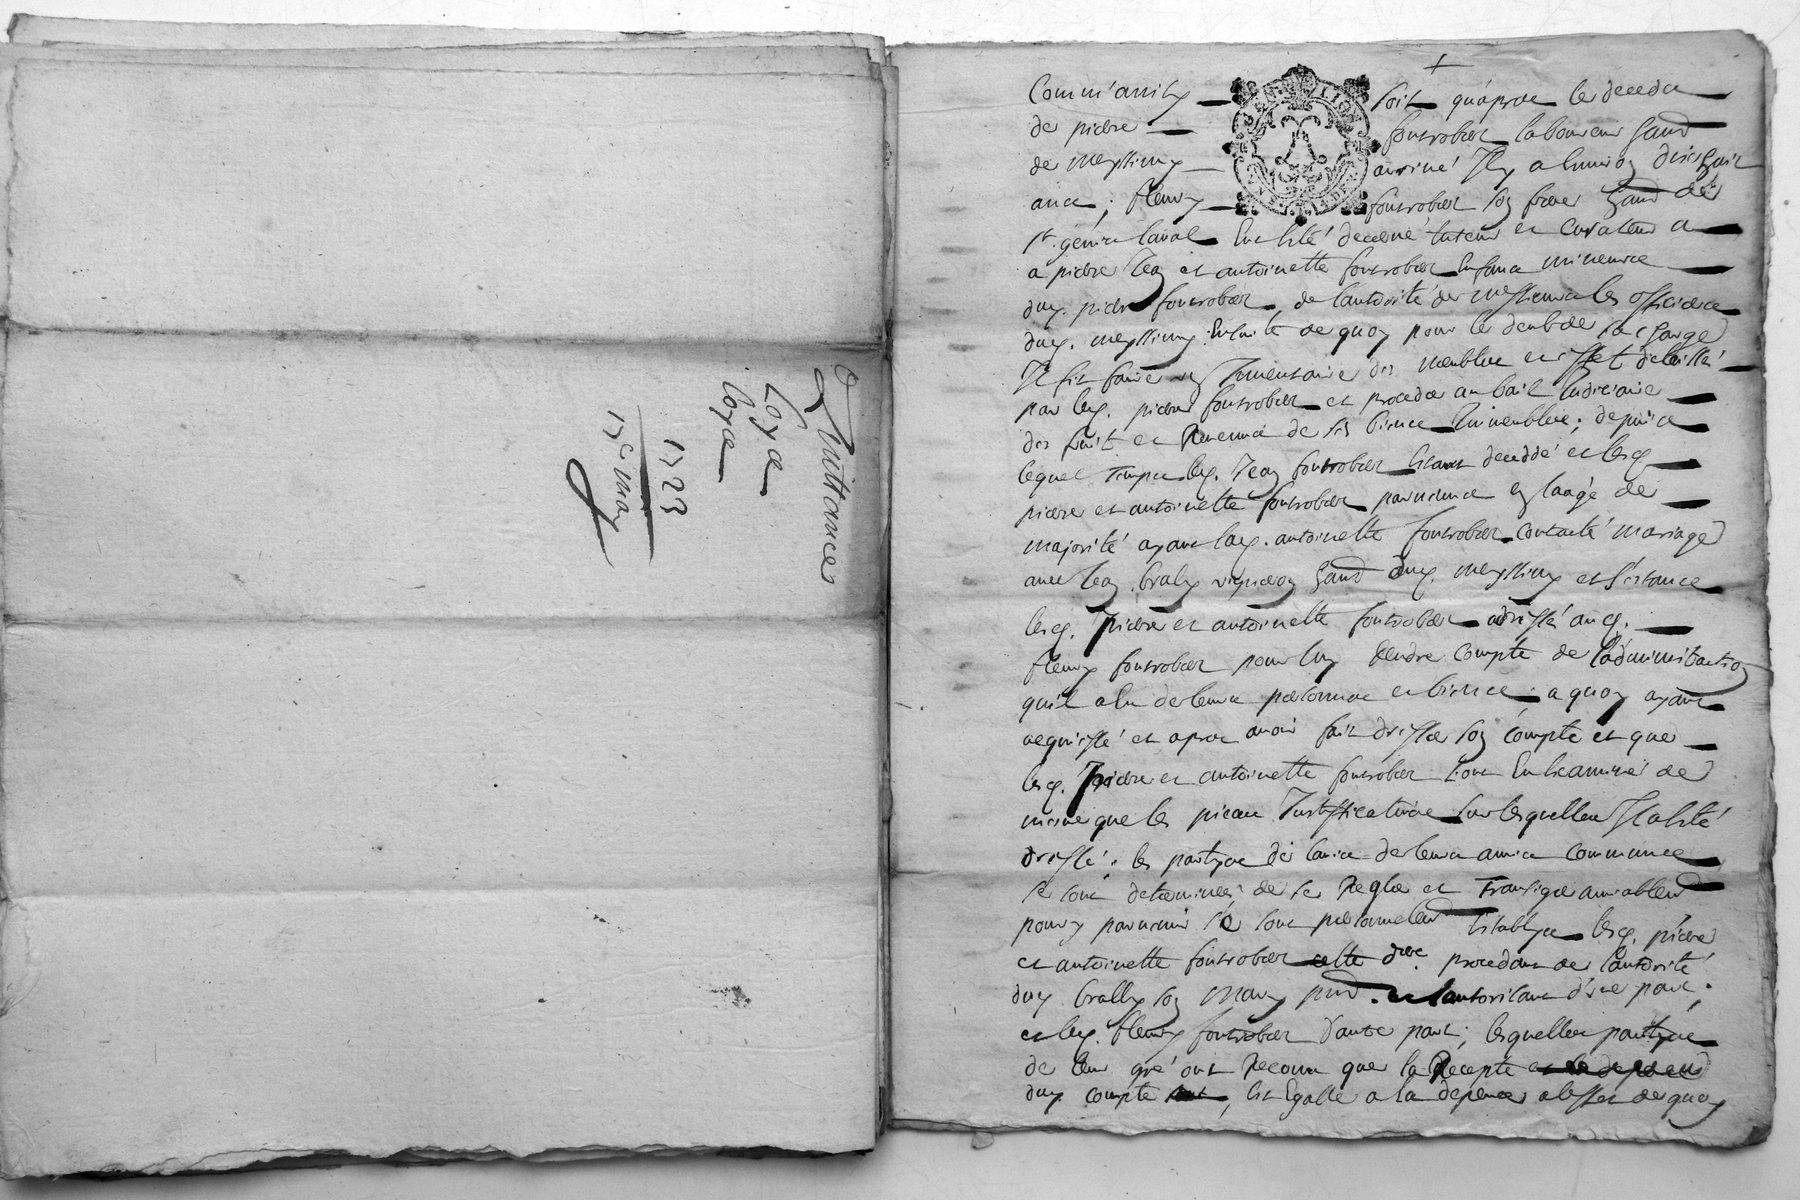 Quittances
Loyæ
Loyæ
1723
17e may
Comm'ainsy soit qu'apræ le decedæ
de pierre fontrobær laboureur habt
de Meyssimy arrivé Il y a Environ dix huit
ans ; fleury fontrobær son frere habt de
st. génis laval Eut esté decerné tuteur et Curateur a
a pierre Jean et antoinette fontrobær Enfans mineurs
dud. pierre fontrobær, de l'autorité de messieurs les officiers
dud. meyssimy Ensuite de quoy pour le deub de sa charge
Il fit faire un Inventaire des meubles et effet délaissé
par led. pierre fontrobær et proceder au bail Judiciaire
des fruit et Revenus de ses biens Immeubles ; depuis
lequel temps led. Jean fontrobær Estant decedé et lesd.
pierre et antoinette fontrobær parvenus en l'aage de
majorité ayant lad. antoinette fontrobær contracté mariage
avec Jean braly vigneron habt dud. meyssimy et s'estants
lesd. pierre et antoinette fontrobær adressé aud.
fleury fontrobær pour luy Rendre compte de l'administration
qu'il a Eu de leurs personnes et biens ; a quoy ayant
acquiessé et apræ avoir fait dresser son compte et que
lesd. pierre et antoinette fontrobær l'ont Exsaminé de
mesme que les pieces Justifficatives sur lesquelles Il a esté
dressé ; les partyes de l'avis de leurs amis communs
se sont determinés de se Regler et Transiger amiablemt
pour y parvenir se sont personnelemt Establys lesd. pierre
et antoinette fontrobær cette dre. procedant de l'autorité
dud. braly son mary pnt. et l'autorisant d'une part ;
et led. fleury fontrobær d'autre part ; lesquelles partyes
de leur gré ont Reconnu que la Recepte et la depense
dud. compte sont, Est Egalle a la depense a l'effet de quoy